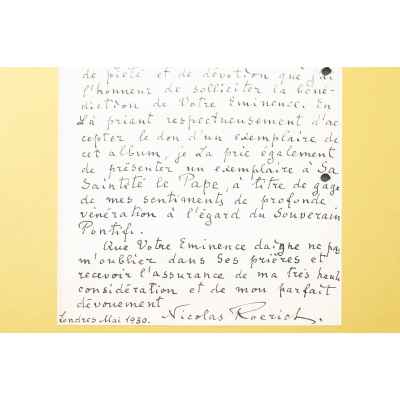 de piété et de dévotion que j'ai
l'honneur de solliciter la béné-
diction de Votre Eminence. En
La priant respectueusement d'ac
cepter le don d'un exemplaire de
cet album, je La prie également
de présenter un exemplaire à Sa
Sainteté le Pape, à titre de gage
de mes sentiments de profonde
vénération à l'égard du Souverain
Pontif.
Que Votre Eminence daigne ne pas
m'oublier dans Ses prières et
recevoir l'assurance de ma très haute
considération et de mon parfait
dévouement
Londres Mai 1930. Nicolas Roerich.